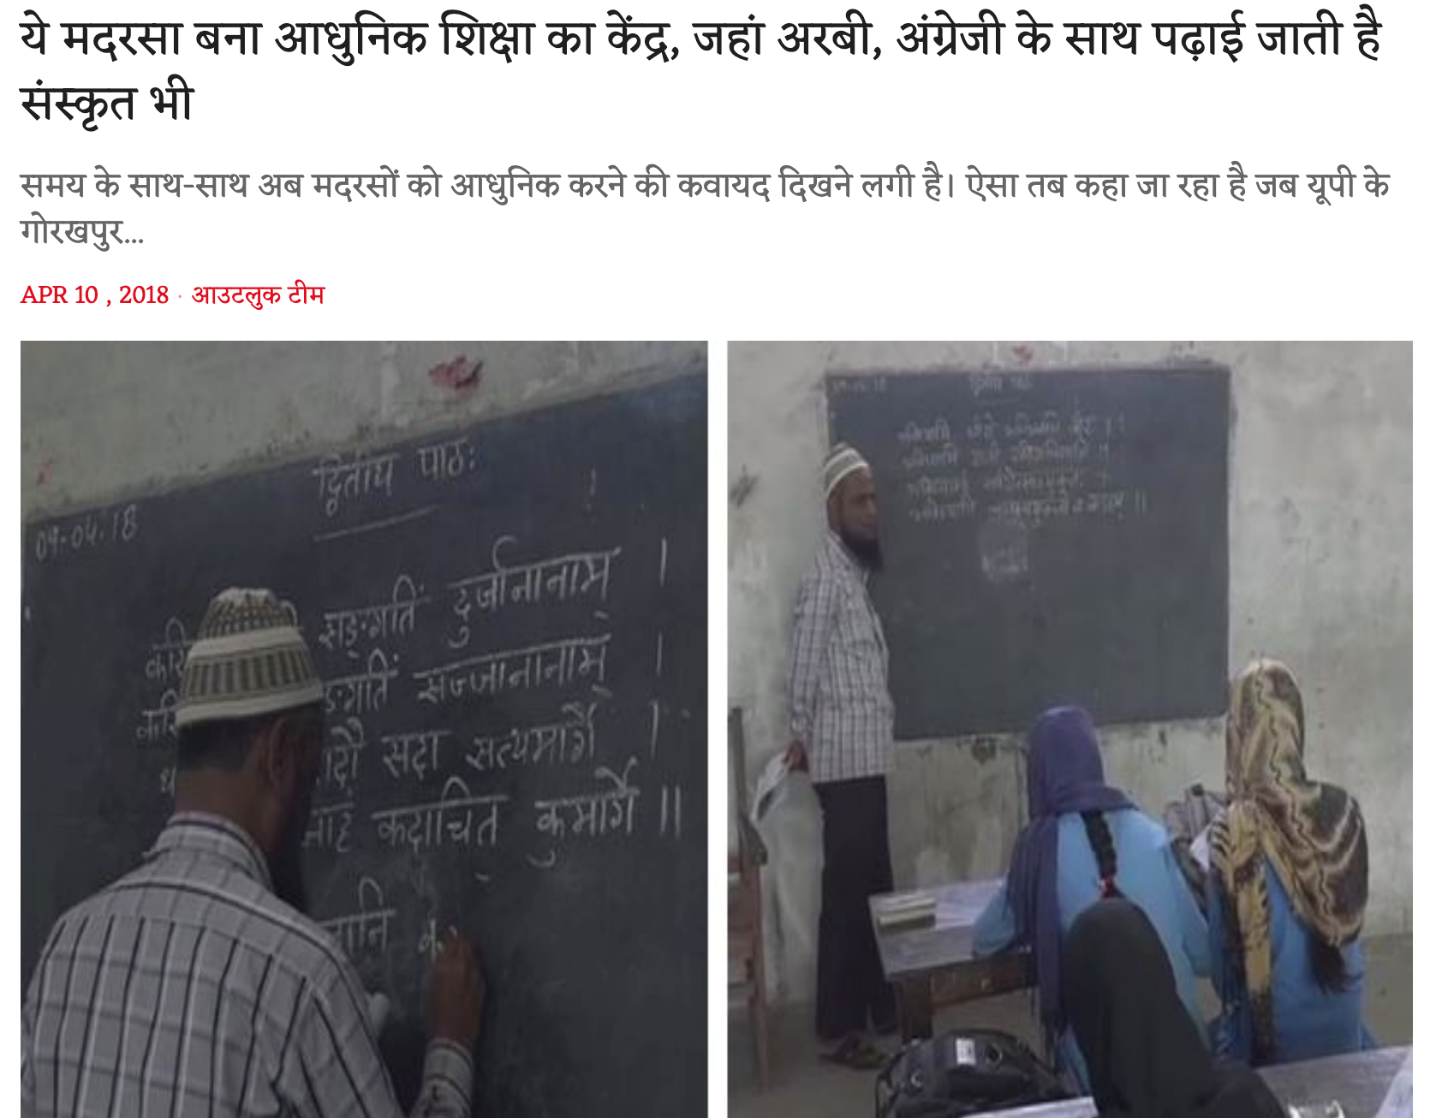 ये मदरसा बना आधुनिक शिक्षा का केंद्र, जहां अरबी, अंग्रेजी के साथ पढ़ाई जाती है
संस्कृत भी
समय के साथ-साथ अब मदरसों को आधुनिक करने की कवायद दिखने लगी है। ऐसा तब कहा जा रहा है जब यूपी के
गोरखपुर...
APR 10 , 2018 · आउटलुक टीम
द्वितीय पाठः
09-04-18
सङ्गतिं दुर्जानानाम् ।
ङ्गतिं सज्जानानाम् ।
सदा सत्यमार्गे ।
कदाचित् कुमार्गे ॥